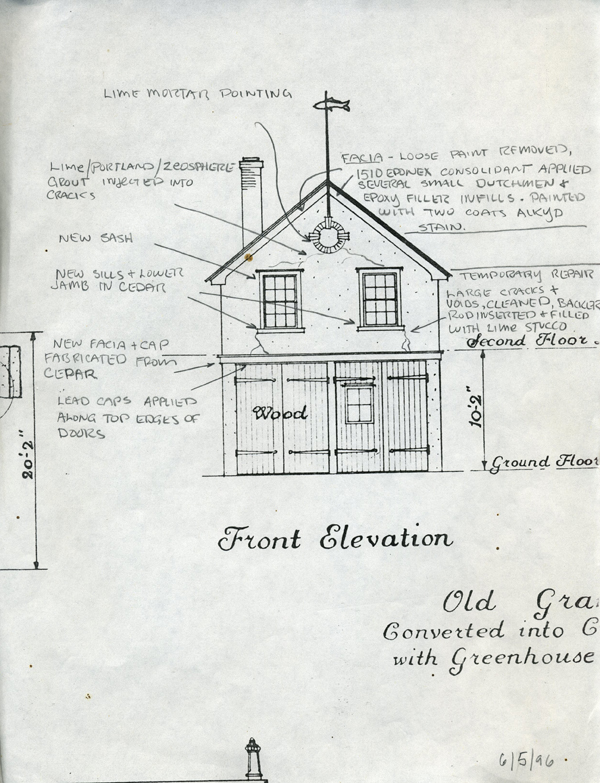 LIME MORTAR POINTING
FACIA - LOOSE PAINT REMOVED,
1510 EPONEX CONSOLIDANT APPLIED
SEVERAL SMALL DUTCHMEN &
EPOXY FILLER INFILLS. PAINTED
WITH TWO COATS ALKYD
STAIN.
LIME/PORTLAND/ZEOSPHERE
GROUT INJECTED INTO
CRACKS
NEW SASH
NEW SILLS + LOWER
JAMB IN CEDAR
TEMPORARY REPAIR
LARGE CRACKS +
VOIDS, CLEANED, BACKER
ROD INSERTED & FILLED
WITH LIME STUCCO
Second Floor
NEW FACIA + CAP
FABRICATED FROM
CEDAR
LEAD CAPS APPLIED
ALONG TOP EDGES OF
DOORS
Wood
10'-2"
20'-2"
Ground Floor
Front Elevation
Old Gra
Converted into C
with Greenhouse
6/5/96